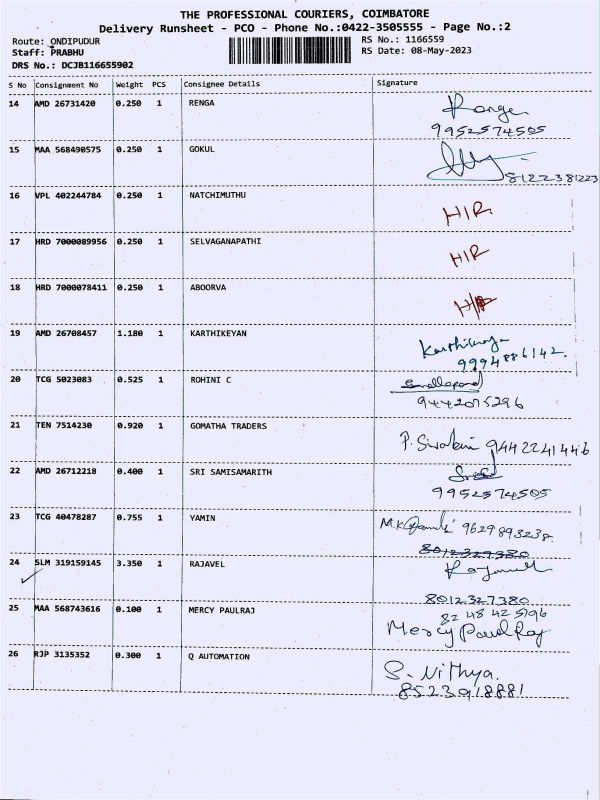 THE PROFESSIONAL COURIERS, COIMBATORE
Delivery Runsheet - PCO - Phone No.:0422-3505555 - Page No.:2
Route: ONDIPUDUR
RS No.: 1166559
Staff: PRABHU
RS Date: 08-May-2023
DRS No.: DCJB116655902
S No Consignment No Weight PCS Consignee Details Signature
14 AMD 26731420 0.250 1 RENGA Range
9952574505
15 MAA 568490575 0.250 1 GOKUL
8122381223
16 VPL 402244784 0.250 1 NATCHIMUTHU HIR
17 HRD 7000089956 0.250 1 SELVAGANAPATHI HIR
18 HRD 7000078411 0.250 1 ABOORVA
19 AMD 26708457 1.180 1 KARTHIKEYAN
9994886142.
20 TCG 5023083 0.525 1 ROHINI C
9442075296
21 TEN 7514230 0.920 1 GOMATHA TRADERS P. 9442241446
22 AMD 26712218 0.400 1 SRI SAMISAMARITH
9952574505
23 TCG 40478287 0.755 1 YAMIN M.K 9629893238
8012327380
24 SLM 319159145 3.350 1 RAJAVEL
8012327380
25 MAA 568743616 0.100 1 MERCY PAULRAJ 82 48 42 5196
Mercy Paul Raj
26 RJP 3135352 0.300 1 Q AUTOMATION S. Nithya.
8523918881